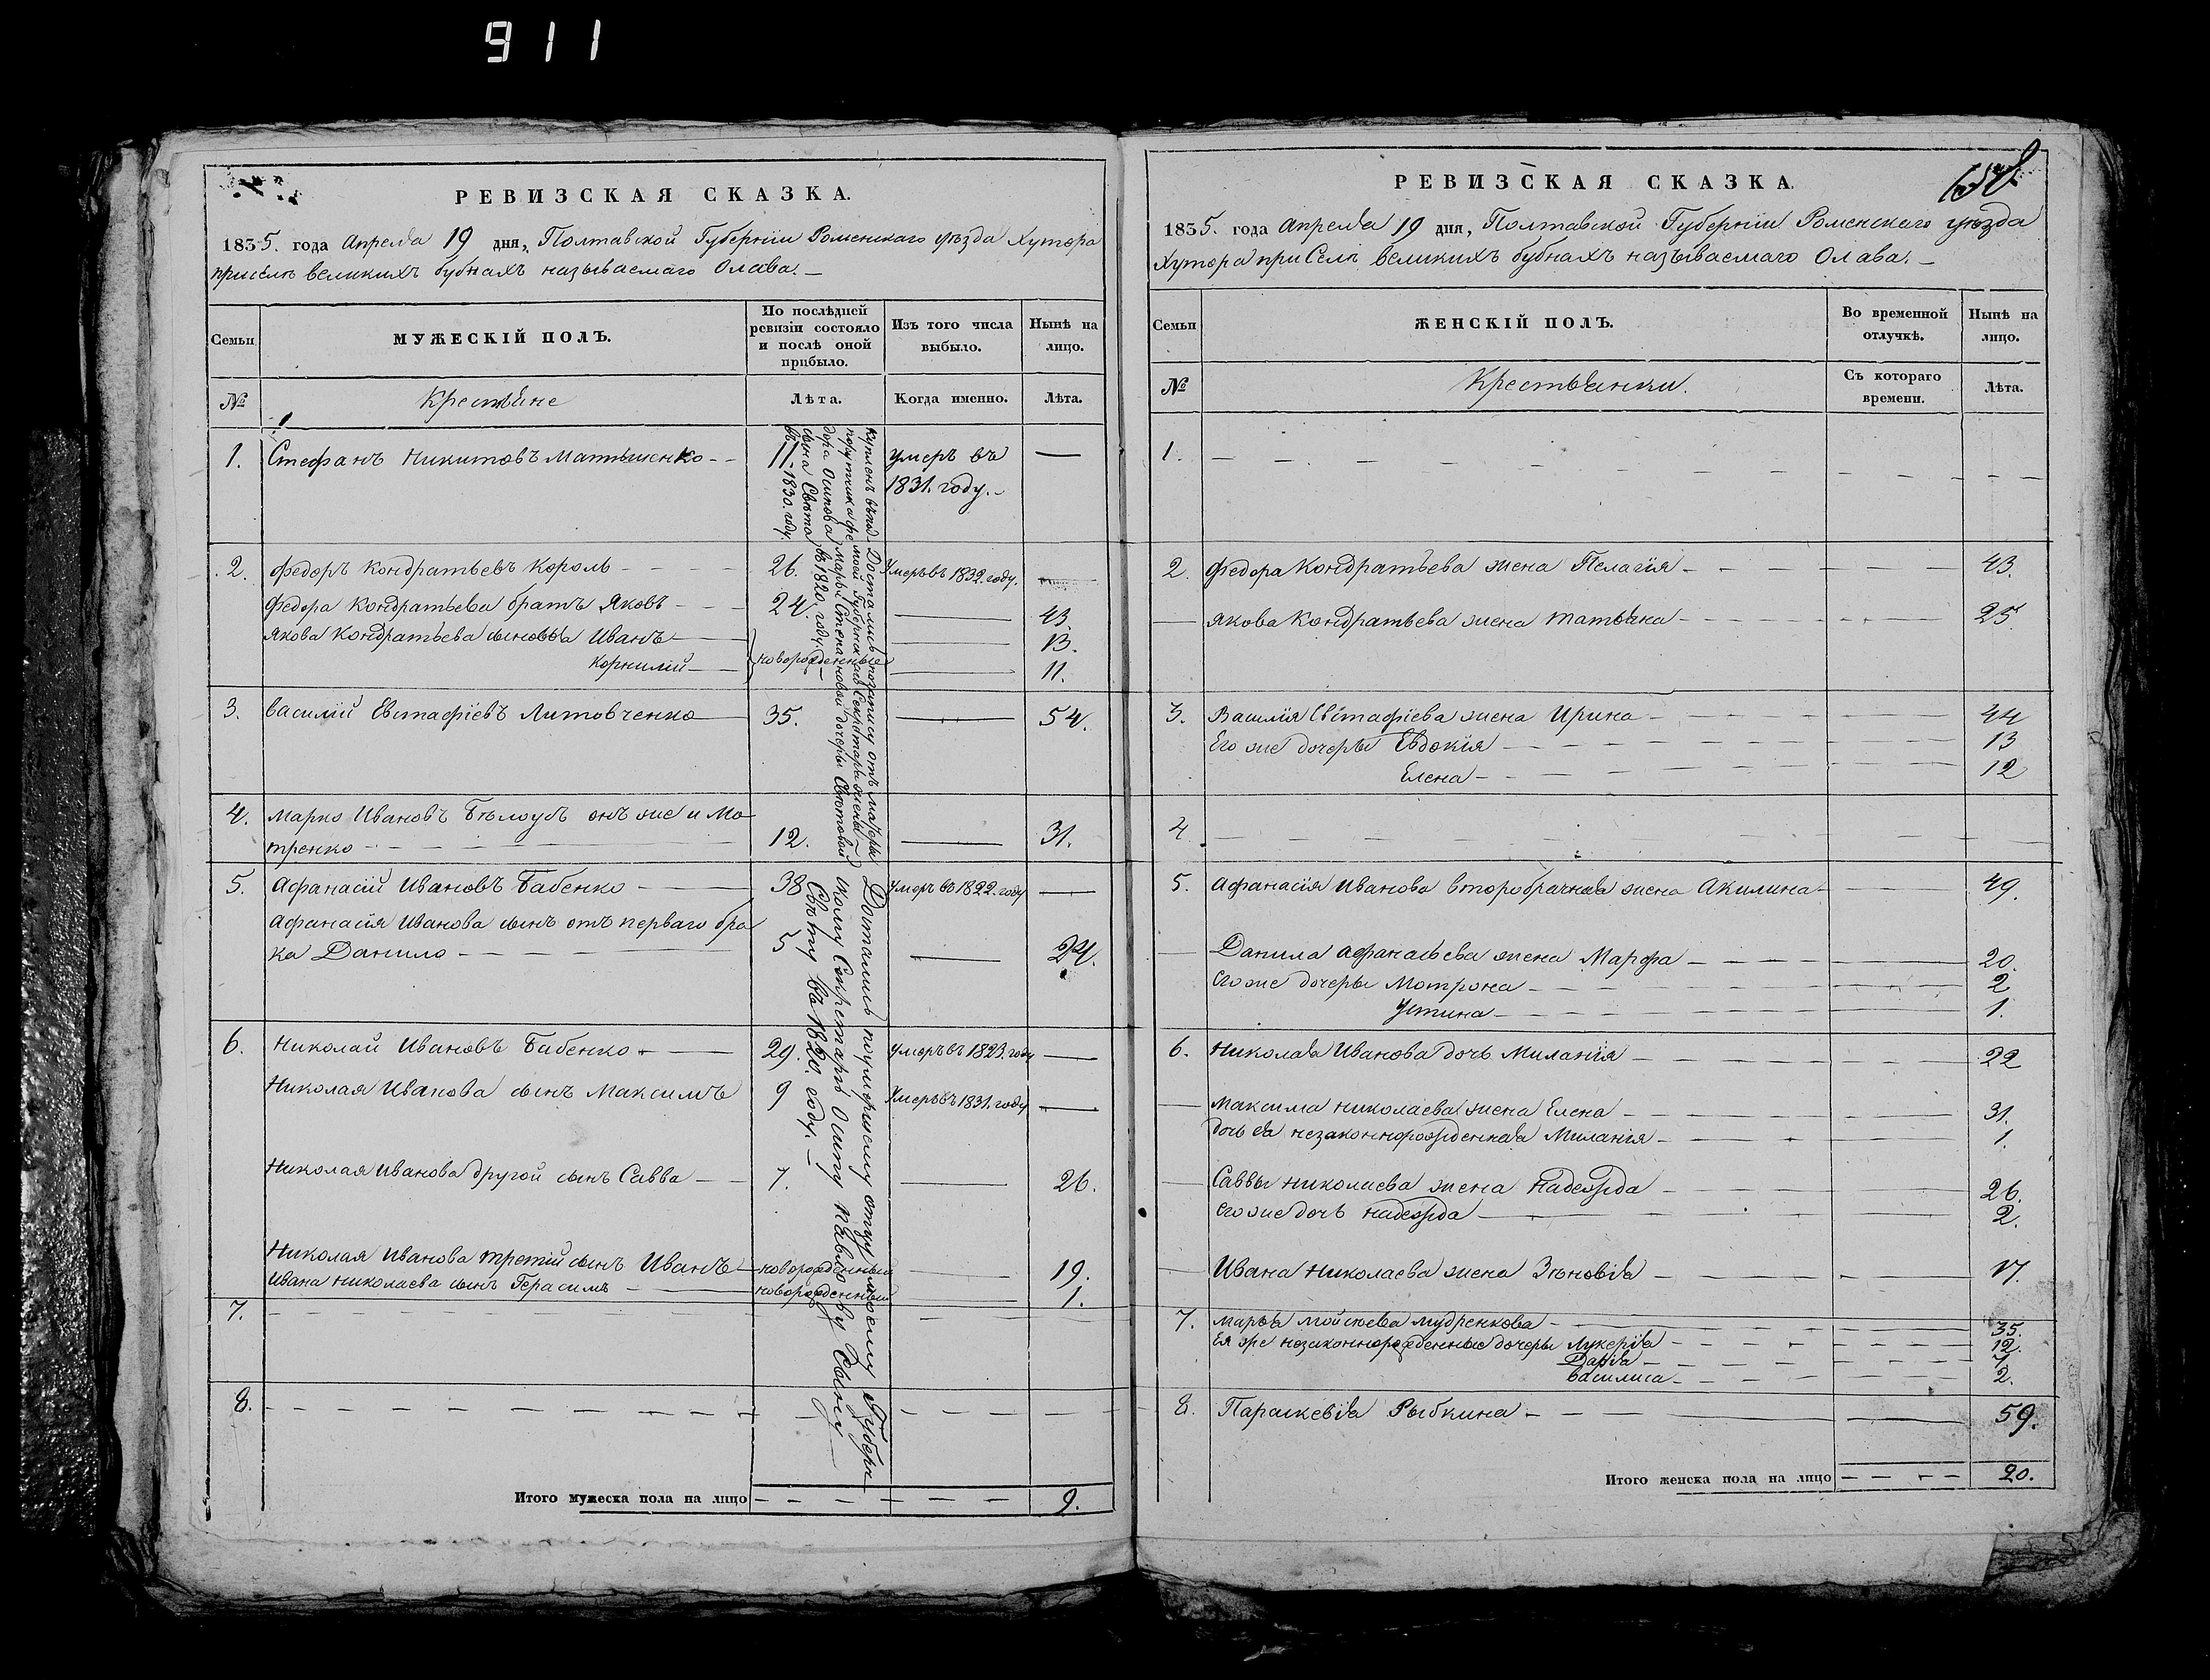 911
РЕВИЗСКАЯ СКАЗКА.
1835. года Апреля 19 дня, Полтавской Губернїи Роменскаго уѣзда Хутора
присѣлѣ великихъ бубнахъ называемаго Олава. —
Семьи
МУЖЕСКІЙ ПОЛЪ.
По послѣдней ревизіи состояло и послѣ оной прибыло.
Изъ того числа выбыло.
Нынѣ на лицо.
№
Крестьяне
Лѣта.
Когда именно.
Лѣта.
1. Стефанъ Никитовъ Матяшенко - - 11 умеръ въ —
1831. году. -
купленъ въ
порутчика
дора Осипова
сына Свѣта
въ 1830. году.
2. Федоръ Кондратьевъ Король - - - - 26. Умеръ въ 1832. году. —
Федора Кондратьева братъ Яковъ - - - 24. — 43.
Якова Кондратьева сыновья Иванъ — — 13.
Корнилій — новорожденные — 11.
3. Василій Евстафіевъ Литовченко — 35. — 54.
4. Марко Ивановъ Бѣлоубъ онъ же и Ма
тренко - - - - 12. — 31.
Достались по купчису отъ матери
моей Губернск. Секретарь жены
Марьи Степановой дочери Свѣтовой
въ 1820. году. —
5. Афанасій Ивановъ Бабенко - — 38 умеръ въ 1822. году —
Афанасія Иванова сынъ отъ перваго бра
ка Данило - - - - 5 — 24.
6. Николай Ивановъ Бабенко - — 29. умеръ въ 1823. году —
Николая Иванова сынъ Максимъ 9 Умеръ въ 1831. году —
Николая Иванова другой сынъ Савва — 7. — 26.
Николая Иванова третій сынъ Иванъ — новорожденный — 19.
Ивана Николаева сынъ Герасимъ — новорожденный — 1.
Достались по умершему отцу моему Губерн
скому Секретарю Осипу Павлову сыну
Свѣту въ 1820. году. —
7. - - - -
8. - - - -
Итого мужеска пола на лицо - - - - 9.
РЕВИЗСКАЯ СКАЗКА.
1835. года Апреля 19 дня, Полтавской Губернїи Роменскаго уѣзда
Хутора при Селѣ великихъ бубнахъ называемаго Олава. —
Семьи
ЖЕНСКІЙ ПОЛЪ.
Во временной отлучкѣ.
Нынѣ на лицо.
№
Крестьянки.
Съ котораго времени.
Лѣта.
1. - - - -
2. Федора Кондратьева жена Пелагія - — 43.
— Якова Кондратьева жена Татьяна - - - 25.
3. Василія Евстафіева жена Ирина - — 44
Его же дочеры Евдокія — 13
Елена - — 12
4 - - - -
5. Афанасія Иванова второбрачная жена Акилина - — 49.
— Данила Афанасьева жена Марфа - — 20.
его же дочеры Мотрона - — 2
Устина - — 1.
6. Николая Иванова дочь Миланія - — 22
— Максима Николаева жена Елена - — 31.
дочь ея незаконнорожденная Миланія - — 1.
— Саввы Николаева жена Надежда - — 26.
его же дочь Надежда — 2.
— Ивана Николаева жена Зѣновія - — 17.
7. Марья Мойсѣева Мудренкова - — 35.
Ея же незаконнорожденные дочеры Лукерія - — 12.
Дарія - — 7
Василиса - — 2.
8. Параскевія Рыбкина - — 59.
Итого женска пола на лицо - - - - 20.